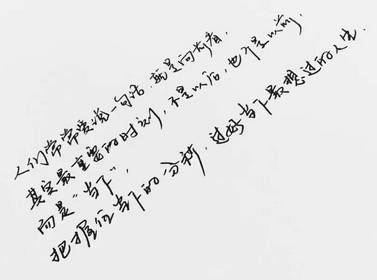 人们常常爱说一句话，就是向前看，
其实最重要的时刻，不是以后，也不是以前，
而是“当下”，
把握住当下的分新，过好当下最想过的人生